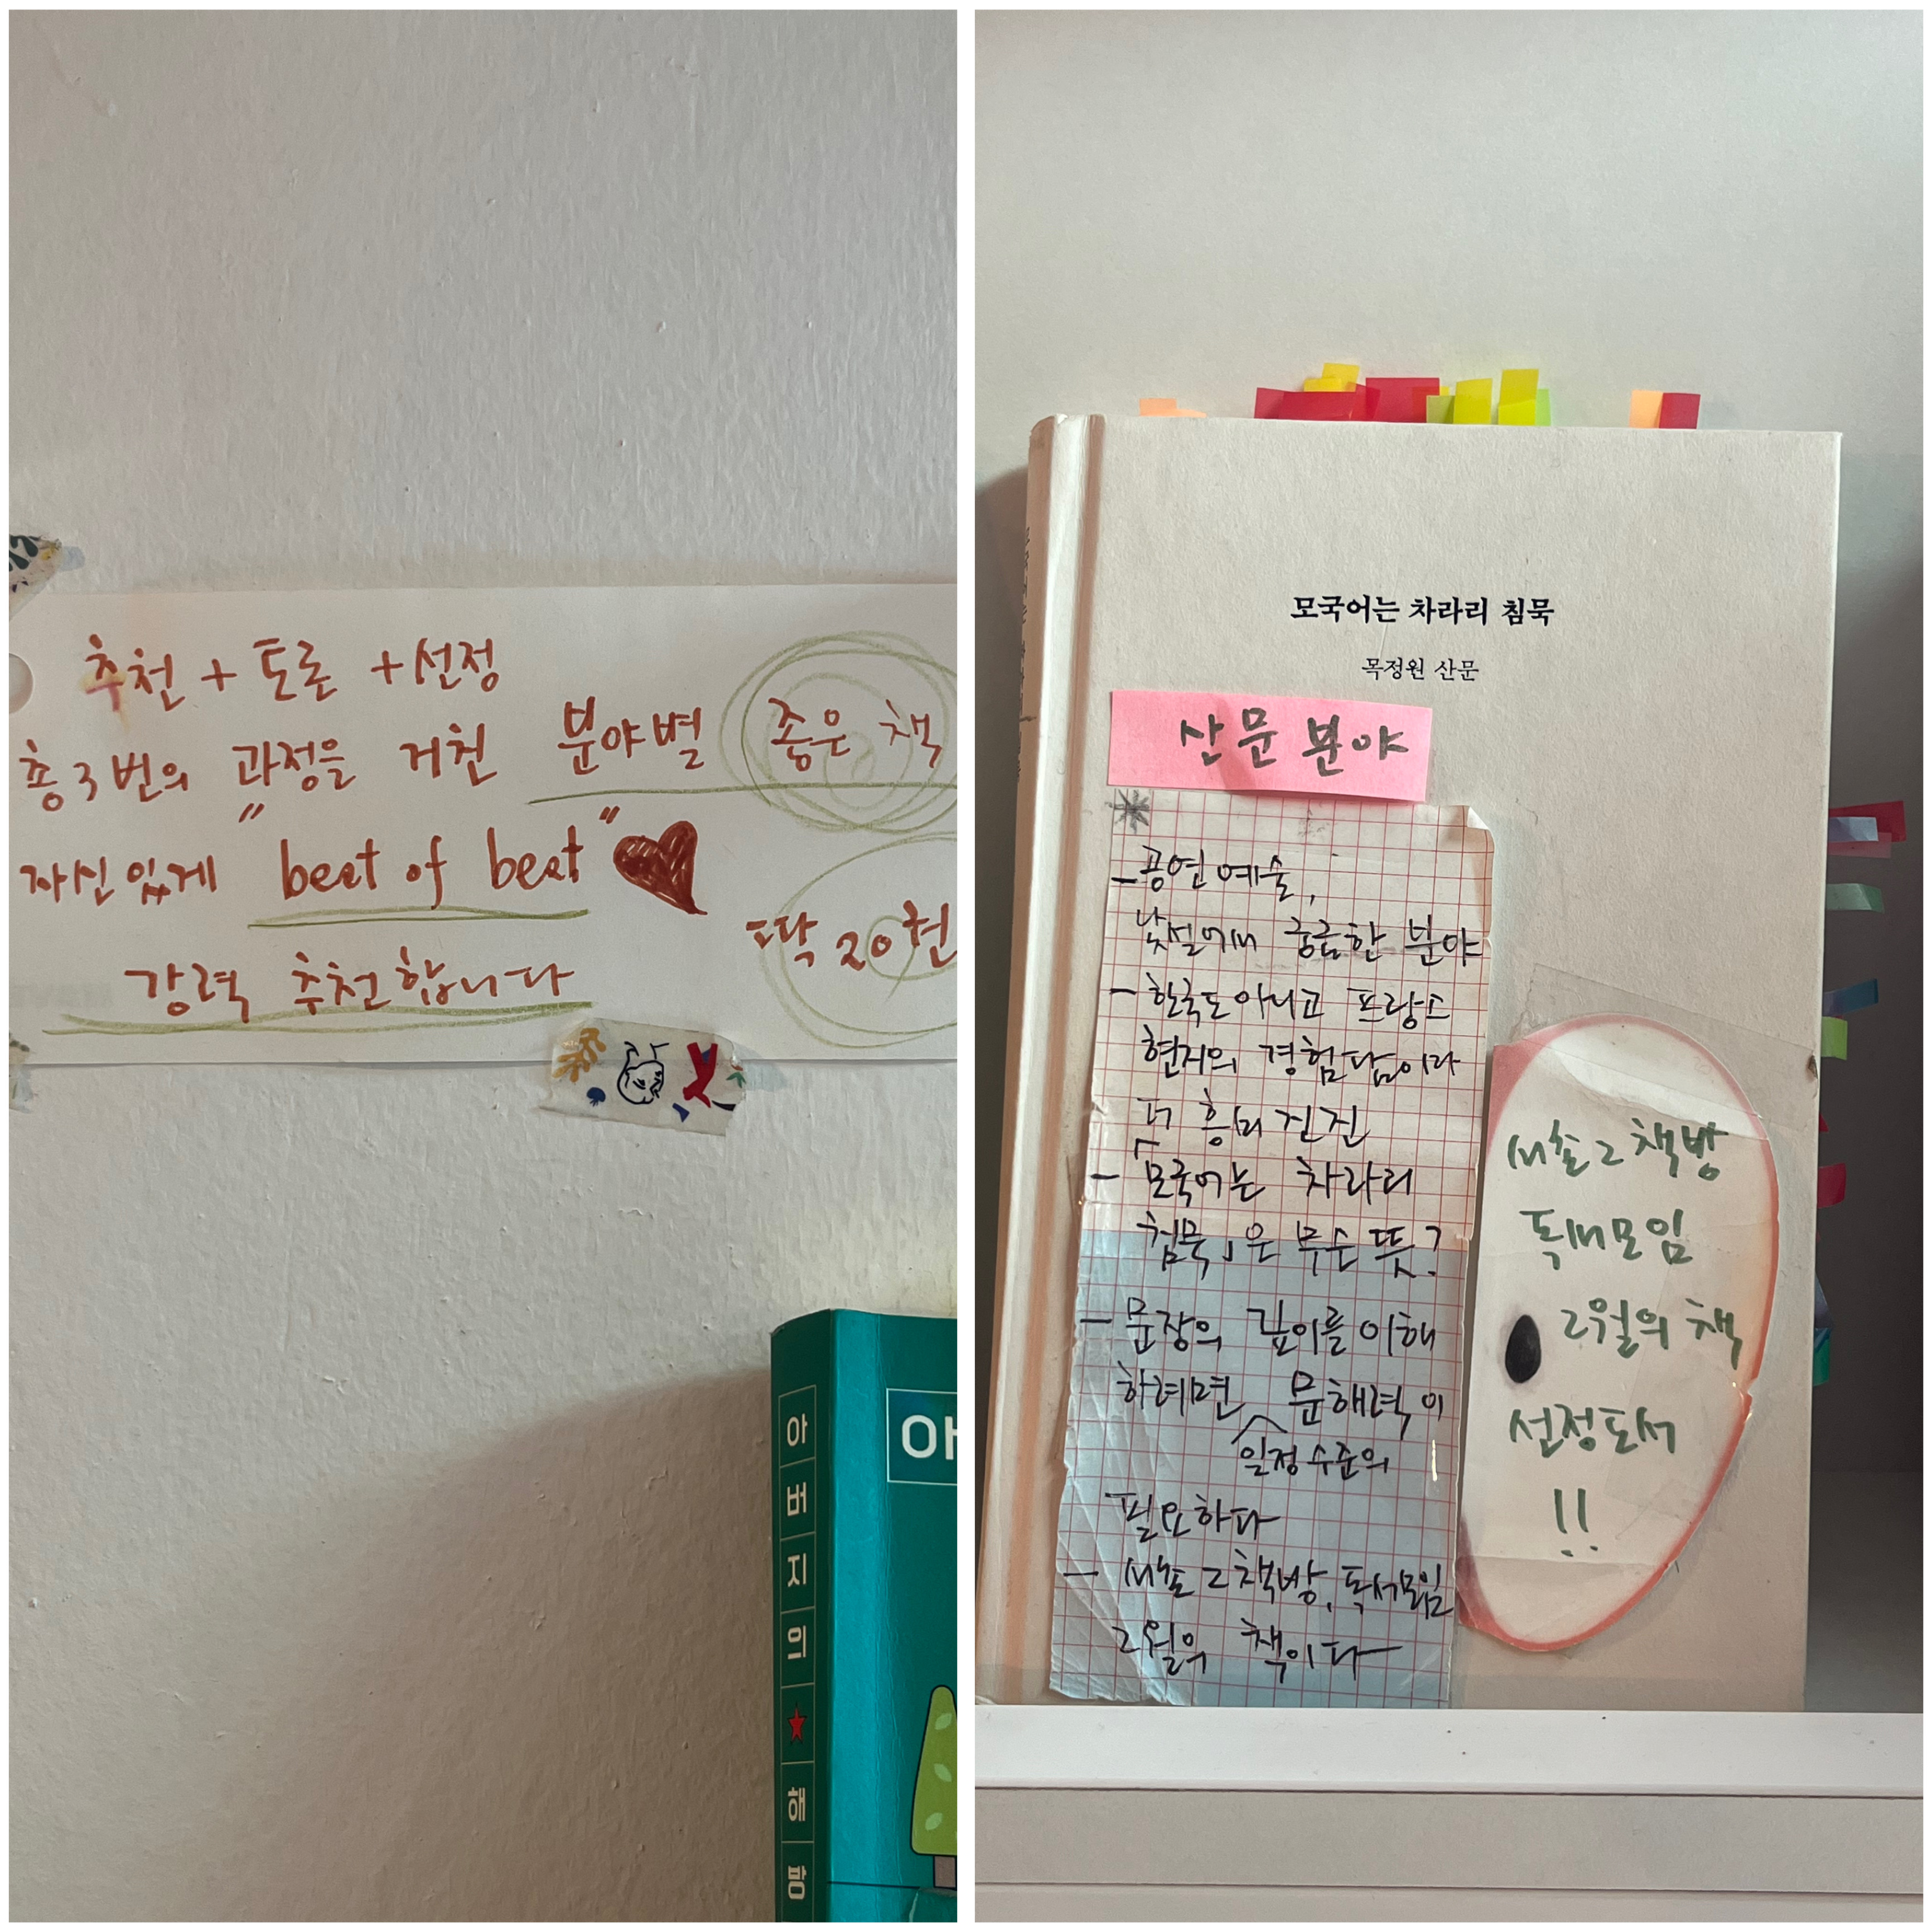 추천 + 토론 + 선정
총 3번의 과정을 거친 분야별 좋은 책
자신있게 "best of best"
딱 20권
강력 추천합니다
아버지의 해방
모국어는 차라리 침묵
목정원 산문
산문 분야
- 공연예술,
낯설에서 궁금한 분야
- 한국도 아니고 프랑스
현지의 경험담이라
더 흥미진진
- 모국어는 차라리
침묵」은 무슨 뜻?
- 문장의 깊이를 이해
하려면 문해력이
일정 수준의
필요하다
- 서촌그책방, 독서모임
2월의 책이다
서촌그책방
독서모임
2월의 책
선정도서
!!